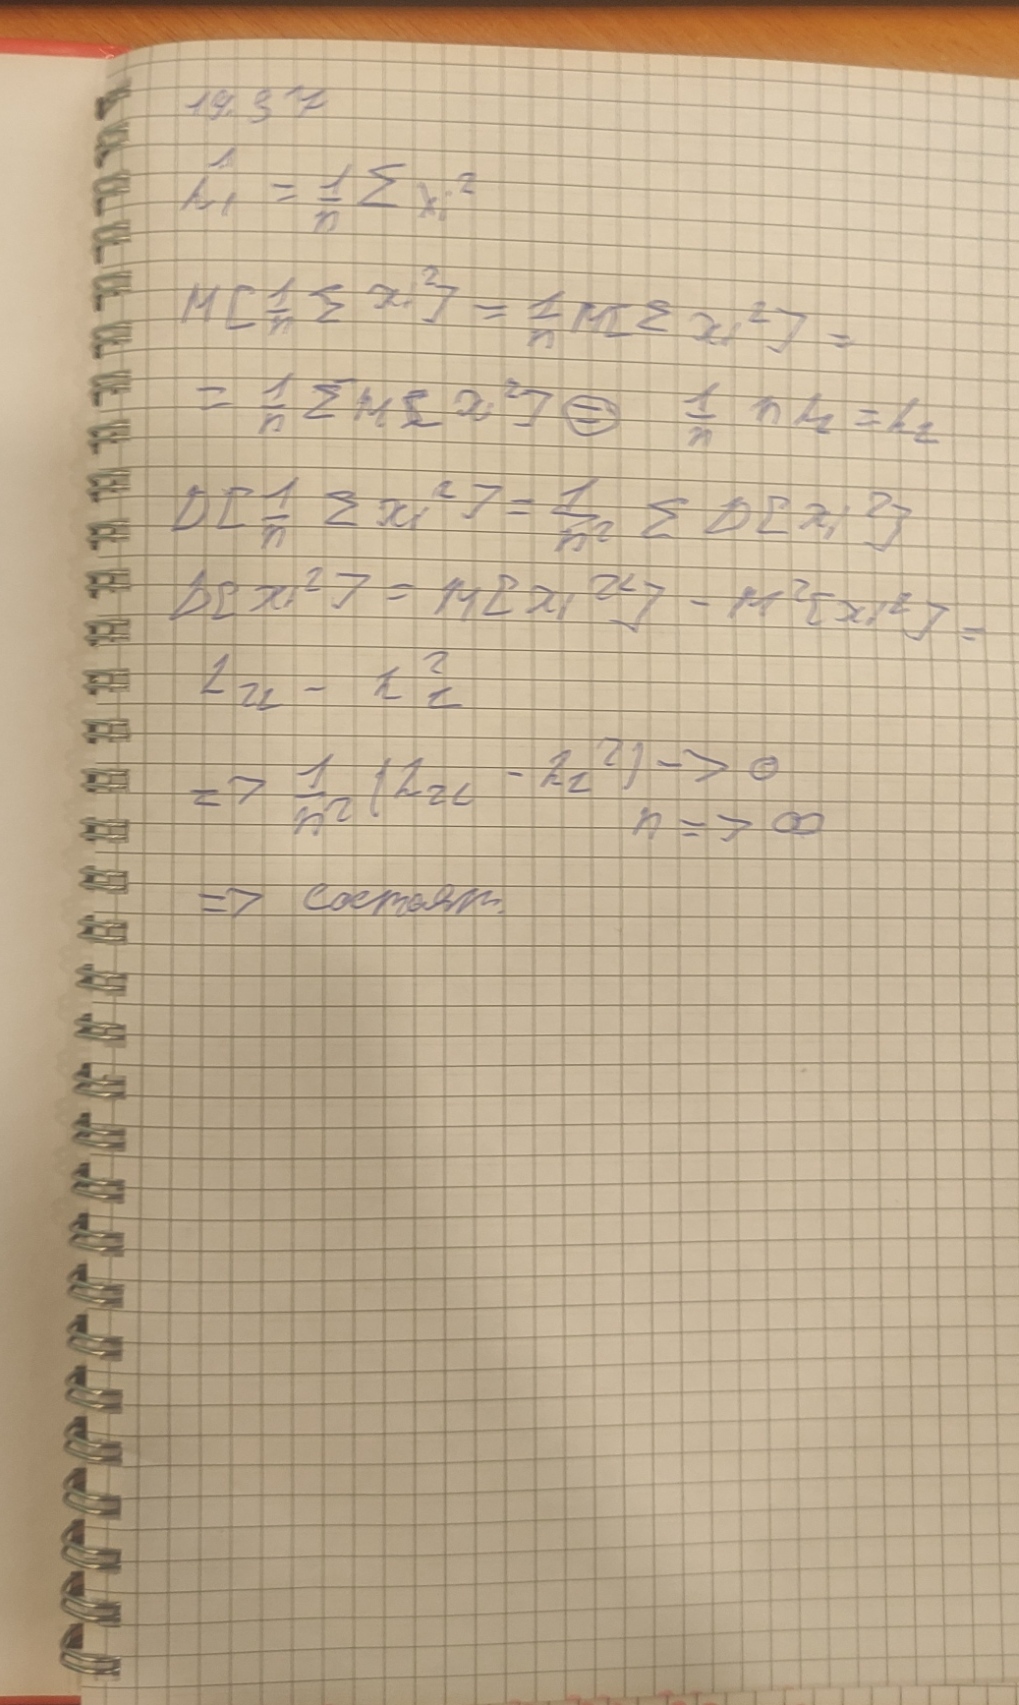 19.37
α̂₁ = 1/n Σ xᵢ²
M[1/n Σ xᵢ²] = 1/n M[Σ xᵢ²] =
= 1/n Σ M[xᵢ²] ⊜ 1/n n α₂ = α₂
D[1/n Σ xᵢ²] = 1/n² Σ D[xᵢ²]
D[xᵢ²] = M[xᵢ²ᶫ] - M²[xᵢ²] =
α₂ᵣ - α₂²
=> 1/n² (α₂ᵣ - α₂²) -> 0
n => ∞
=> состоят.